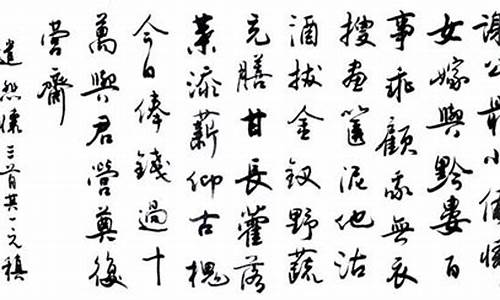 謝公最小偏憐
女嫁與黔婁百
事乖顧我無衣
搜畫篋泥他沽
酒拔金釵野蔬
充膳甘長藿落
葉添薪仰古槐
今日俸錢過十
萬與君營奠復
營齋
遣悲懷三首其一元稹